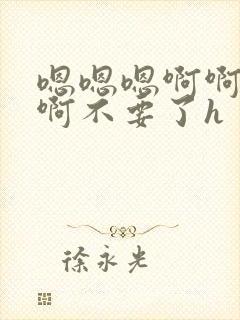 嗯嗯嗯啊啊
啊不要了h
徐永光